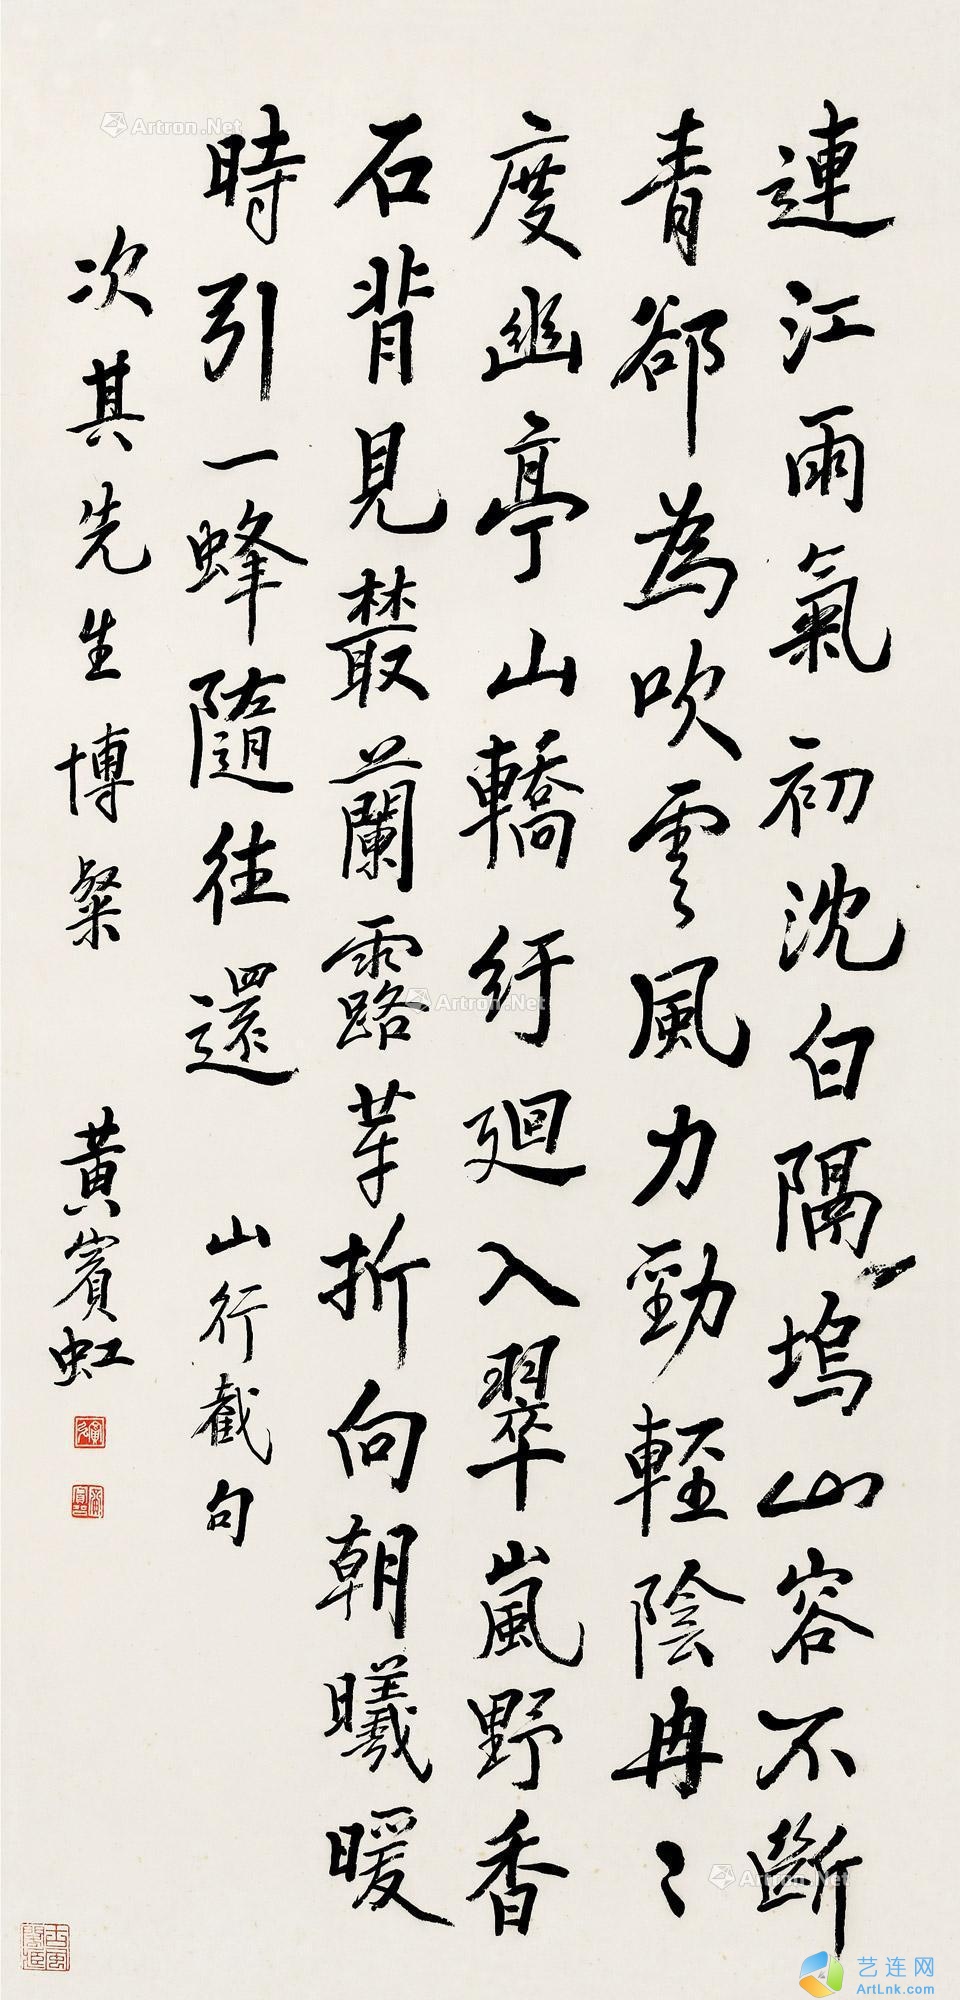 連江雨氣初沈白隔塢山容不斷
青郤為吹雲風力勁輕陰冉〻
度幽亭山轎紆迴入翠嵐野香
石背見叢蘭露芽折向朝曦暖
時引一蜂隨往還 山行截句
次其先生博粲 黃賓虹
Artron.Net
Artron.Net
Artron.Net
艺连网
ArtLnk.com